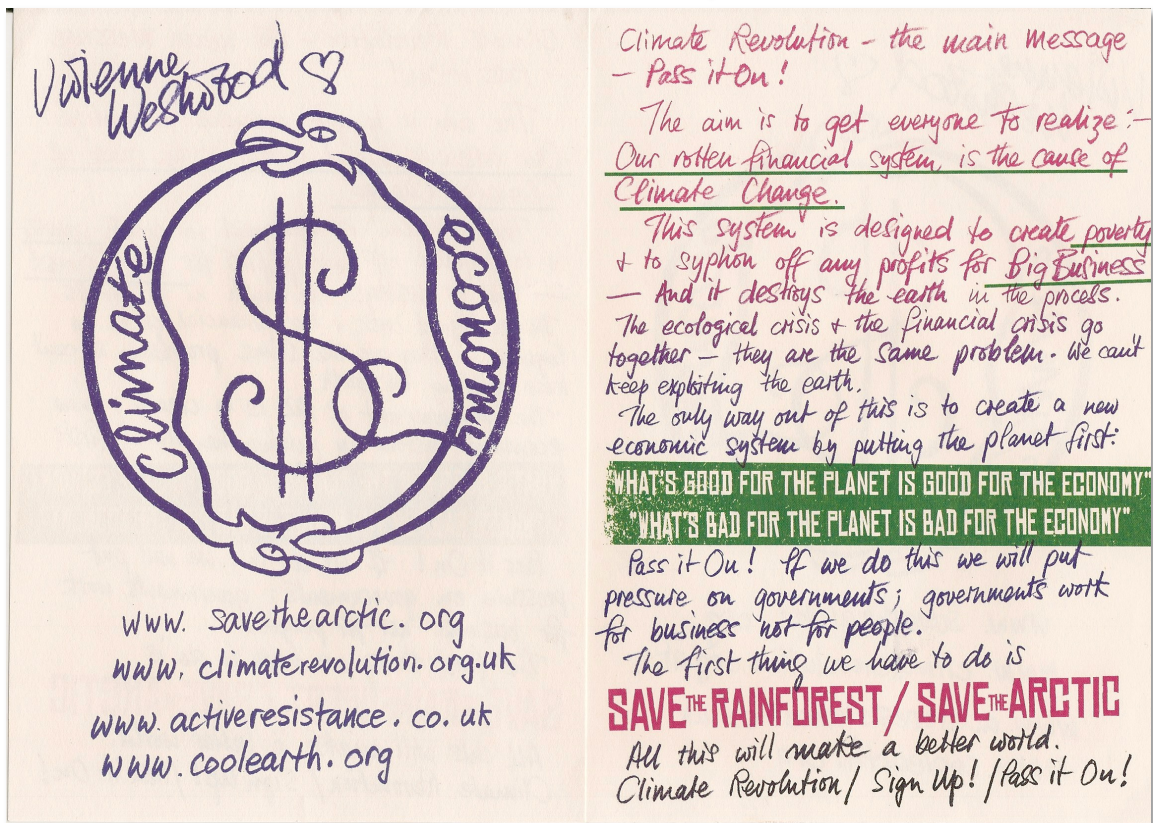 Vivienne
Westwood
Climate
economy
www. savethearctic. org
www. climaterevolution. org.uk
www. activeresistance. co. uk
www. coolearth. org
Climate Revolution – the main message
– Pass it On!
The aim is to get everyone to realize :–
Our rotten financial system, is the cause of
Climate Change.
This system is designed to create poverty
+ to syphon off any profits for Big Business
— And it destroys the earth in the process.
The ecological crisis + the financial crisis go
together – they are the same problem. We can't
keep exploiting the earth.
The only way out of this is to create a new
economic system by putting the planet first:
"WHAT'S GOOD FOR THE PLANET IS GOOD FOR THE ECONOMY"
"WHAT'S BAD FOR THE PLANET IS BAD FOR THE ECONOMY"
Pass it On! If we do this we will put
pressure on governments; governments work
for business not for people.
The first thing we have to do is
SAVE THE RAINFOREST / SAVE THE ARCTIC
All this will make a better world.
Climate Revolution / Sign Up! / Pass it On!